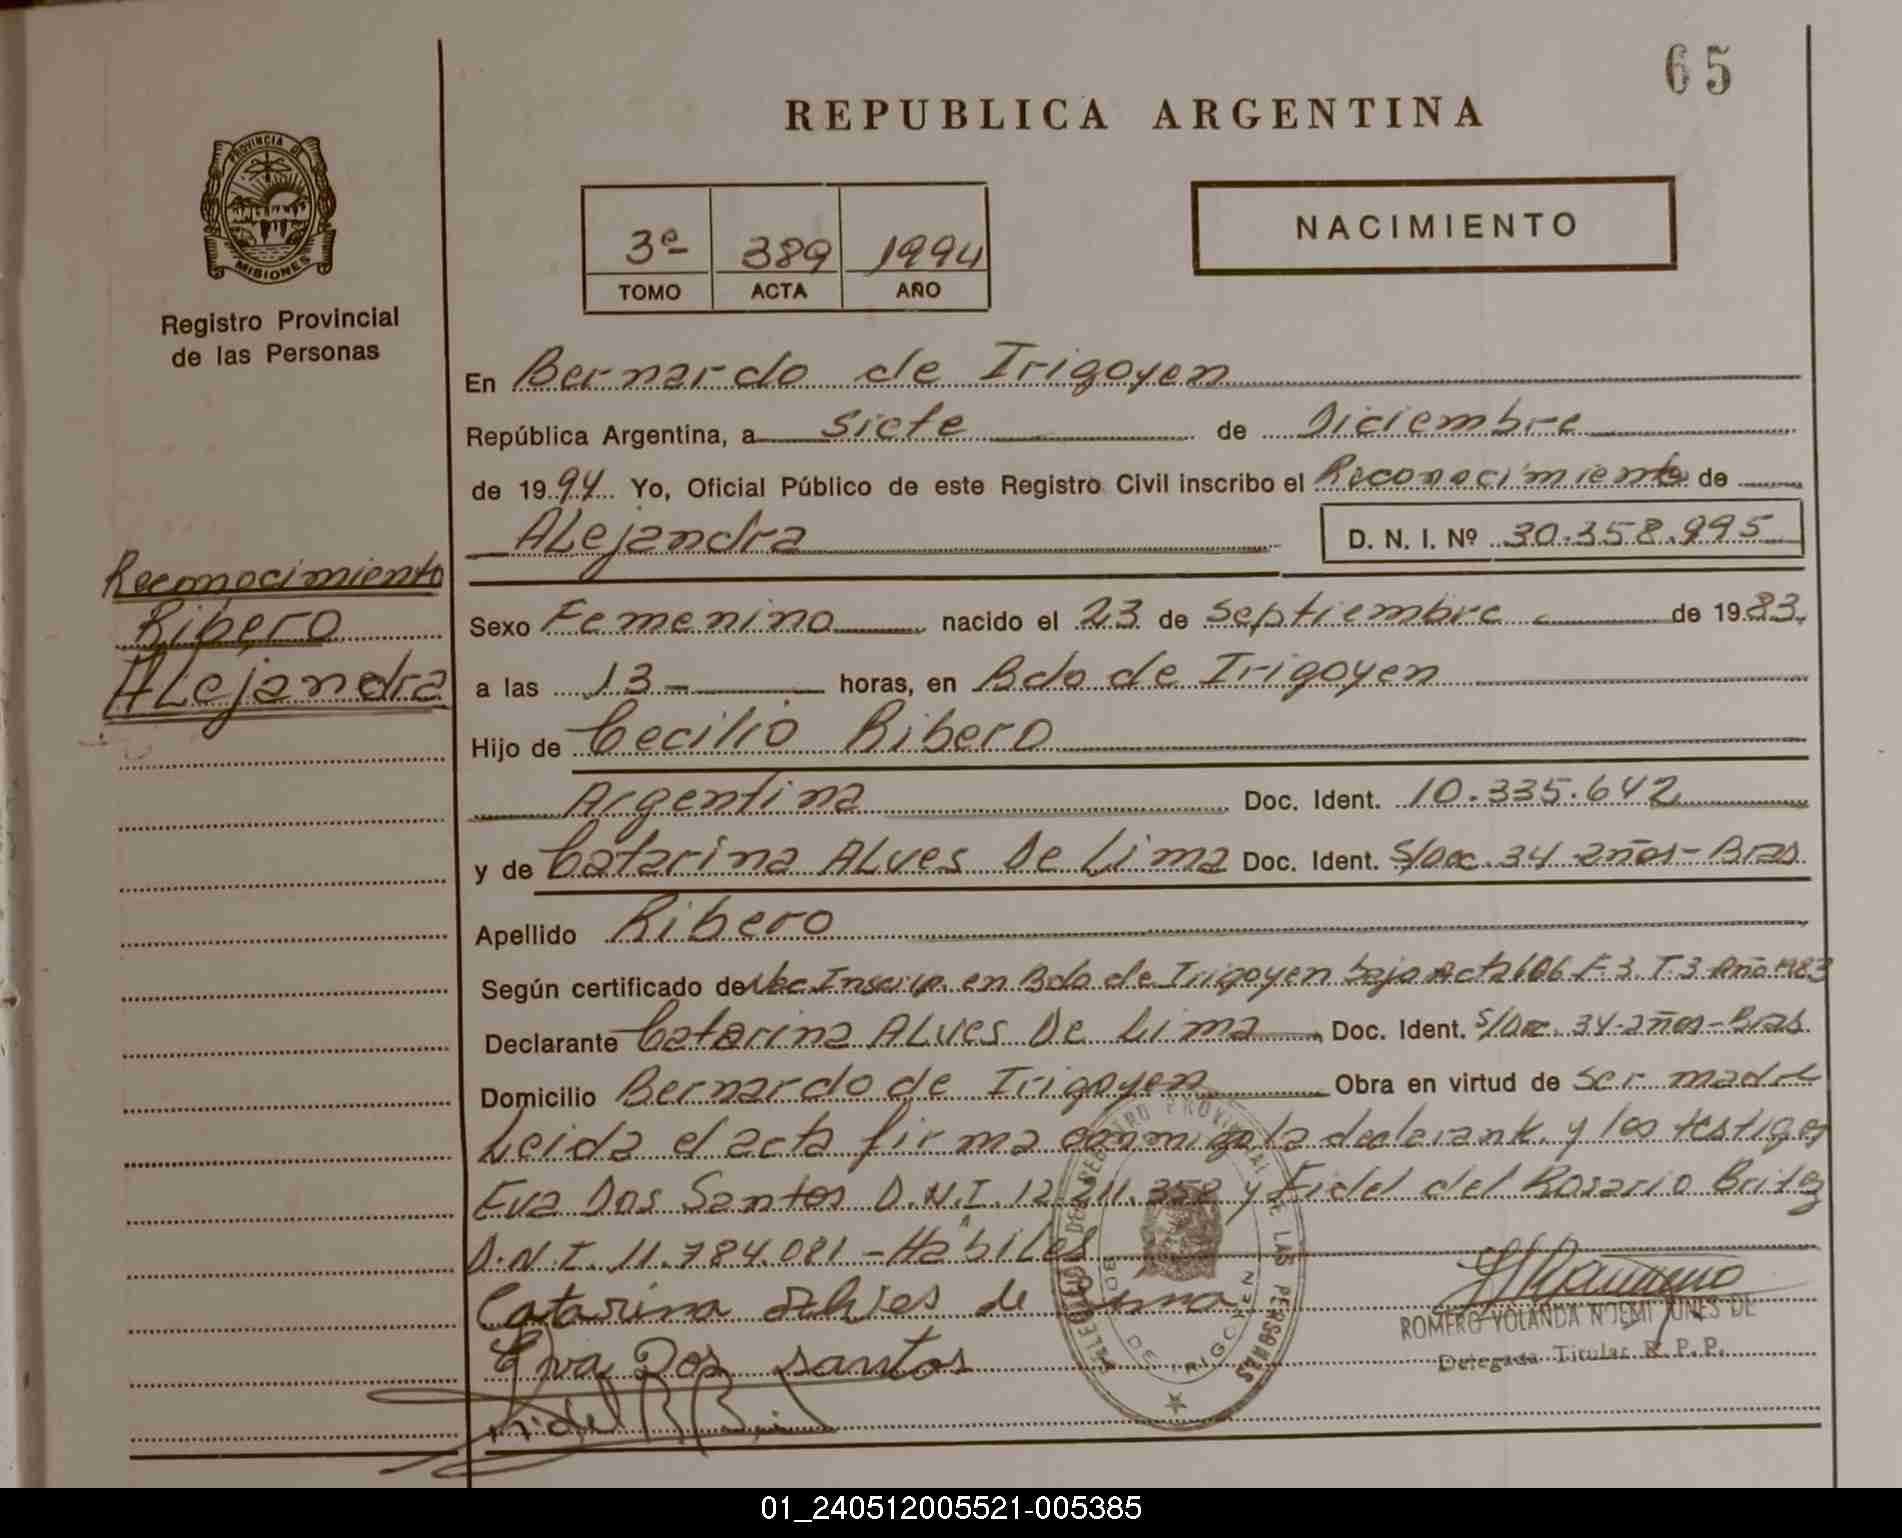 65
REPUBLICA ARGENTINA
PROVINCIA DE
MISIONES
Registro Provincial
de las Personas
3º 389 1994
TOMO ACTA AÑO
NACIMIENTO
En Bernardo de Irigoyen
República Argentina, a Siete de Diciembre
de 1994 Yo, Oficial Público de este Registro Civil inscribo el Reconocimiento de
ALejandra D. N. I. Nº 30.358.995
Reconocimiento
Ribero
ALejandra
Sexo Femenino nacido el 23 de Septiembre de 1983.
a las 13- horas, en Bdo de Irigoyen
Hijo de Cecilio Ribero
Argentina Doc. Ident. 10.335.642
y de Catarina ALves De Lima Doc. Ident. S/Doc. 34 años-Bras
Apellido Ribero
Según certificado de Inscrip. en Bdo de Irigoyen bajo Acta 606 F.3. T.3 Año 1983
Declarante Catarina ALves De Lima Doc. Ident. S/Doc. 34-años-Bras
Domicilio Bernardo de Irigoyen Obra en virtud de Ser madre
Leida el acta firma conmigo la declarant. y los testigos
Eva Dos Santos D.N.I. 12.211.358 y Fidel del Rosario Britez
D.N.I. 11.784.081-Habiles
Catarina Alves de Lima
Eva Dos santos
Fidel R B
ROMERO YOLANDA NOEMI JUNES DE
Delegada Titular R. P. P.
REGISTRO PROVINCIAL DE LAS PERSONAS
BDO DE IRIGOYEN
01_240512005521-005385